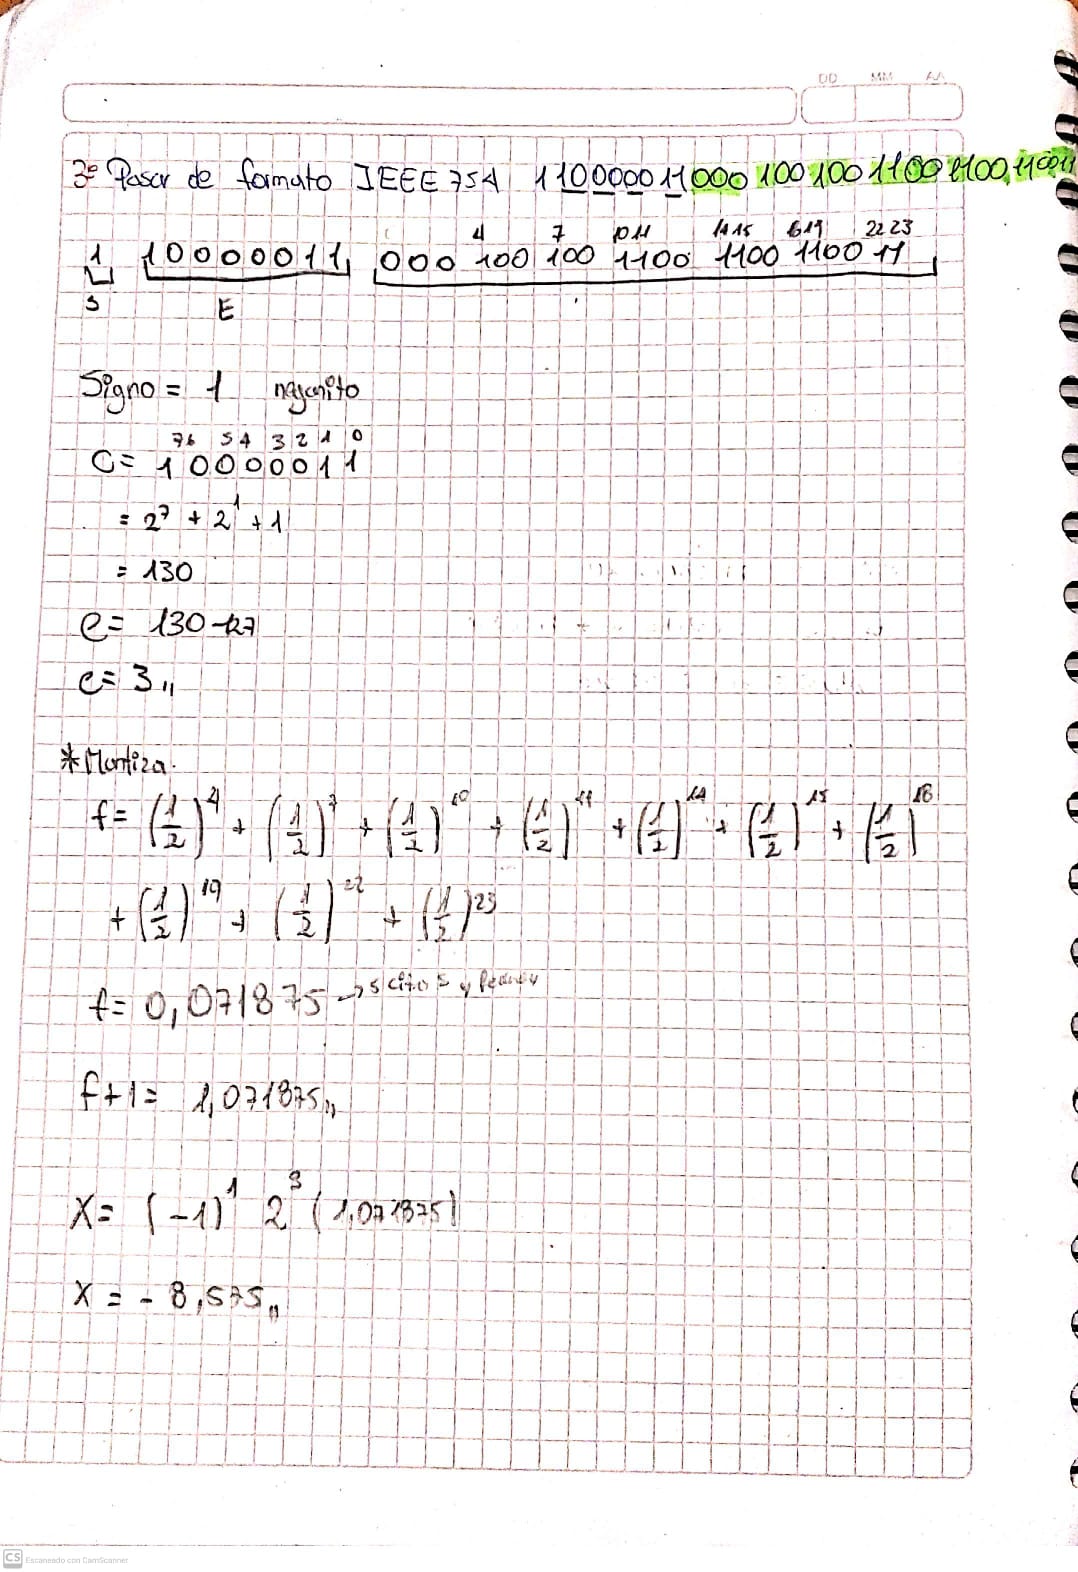 DD MM AA
3º Pasar de formato IEEE 754 1 10000011 000 100 100 1100 1100 110011
4 7 10 11 14 15 18 19 22 23
1 10000011, 000 100 100 1100 1100 1100 11
S E
Signo = 1
7 6 5 4 3 2 1 0
C= 10000011
= 2⁷ + 2¹ + 1
= 130
e= 130-127
e= 3,,
*Mantiza.
f= (1/2)⁴ + (1/2)⁷ + (1/2)¹⁰ + (1/2)¹¹ + (1/2)¹⁴ + (1/2)¹⁵ + (1/2)¹⁸
+ (1/2)¹⁹ + (1/2)²² + (1/2)²³
f= 0,071875 →
f+1= 1,071875,,
X= (-1)¹ 2³ (1,071875)
X = - 8,575,,
CS Escaneado con CamScanner